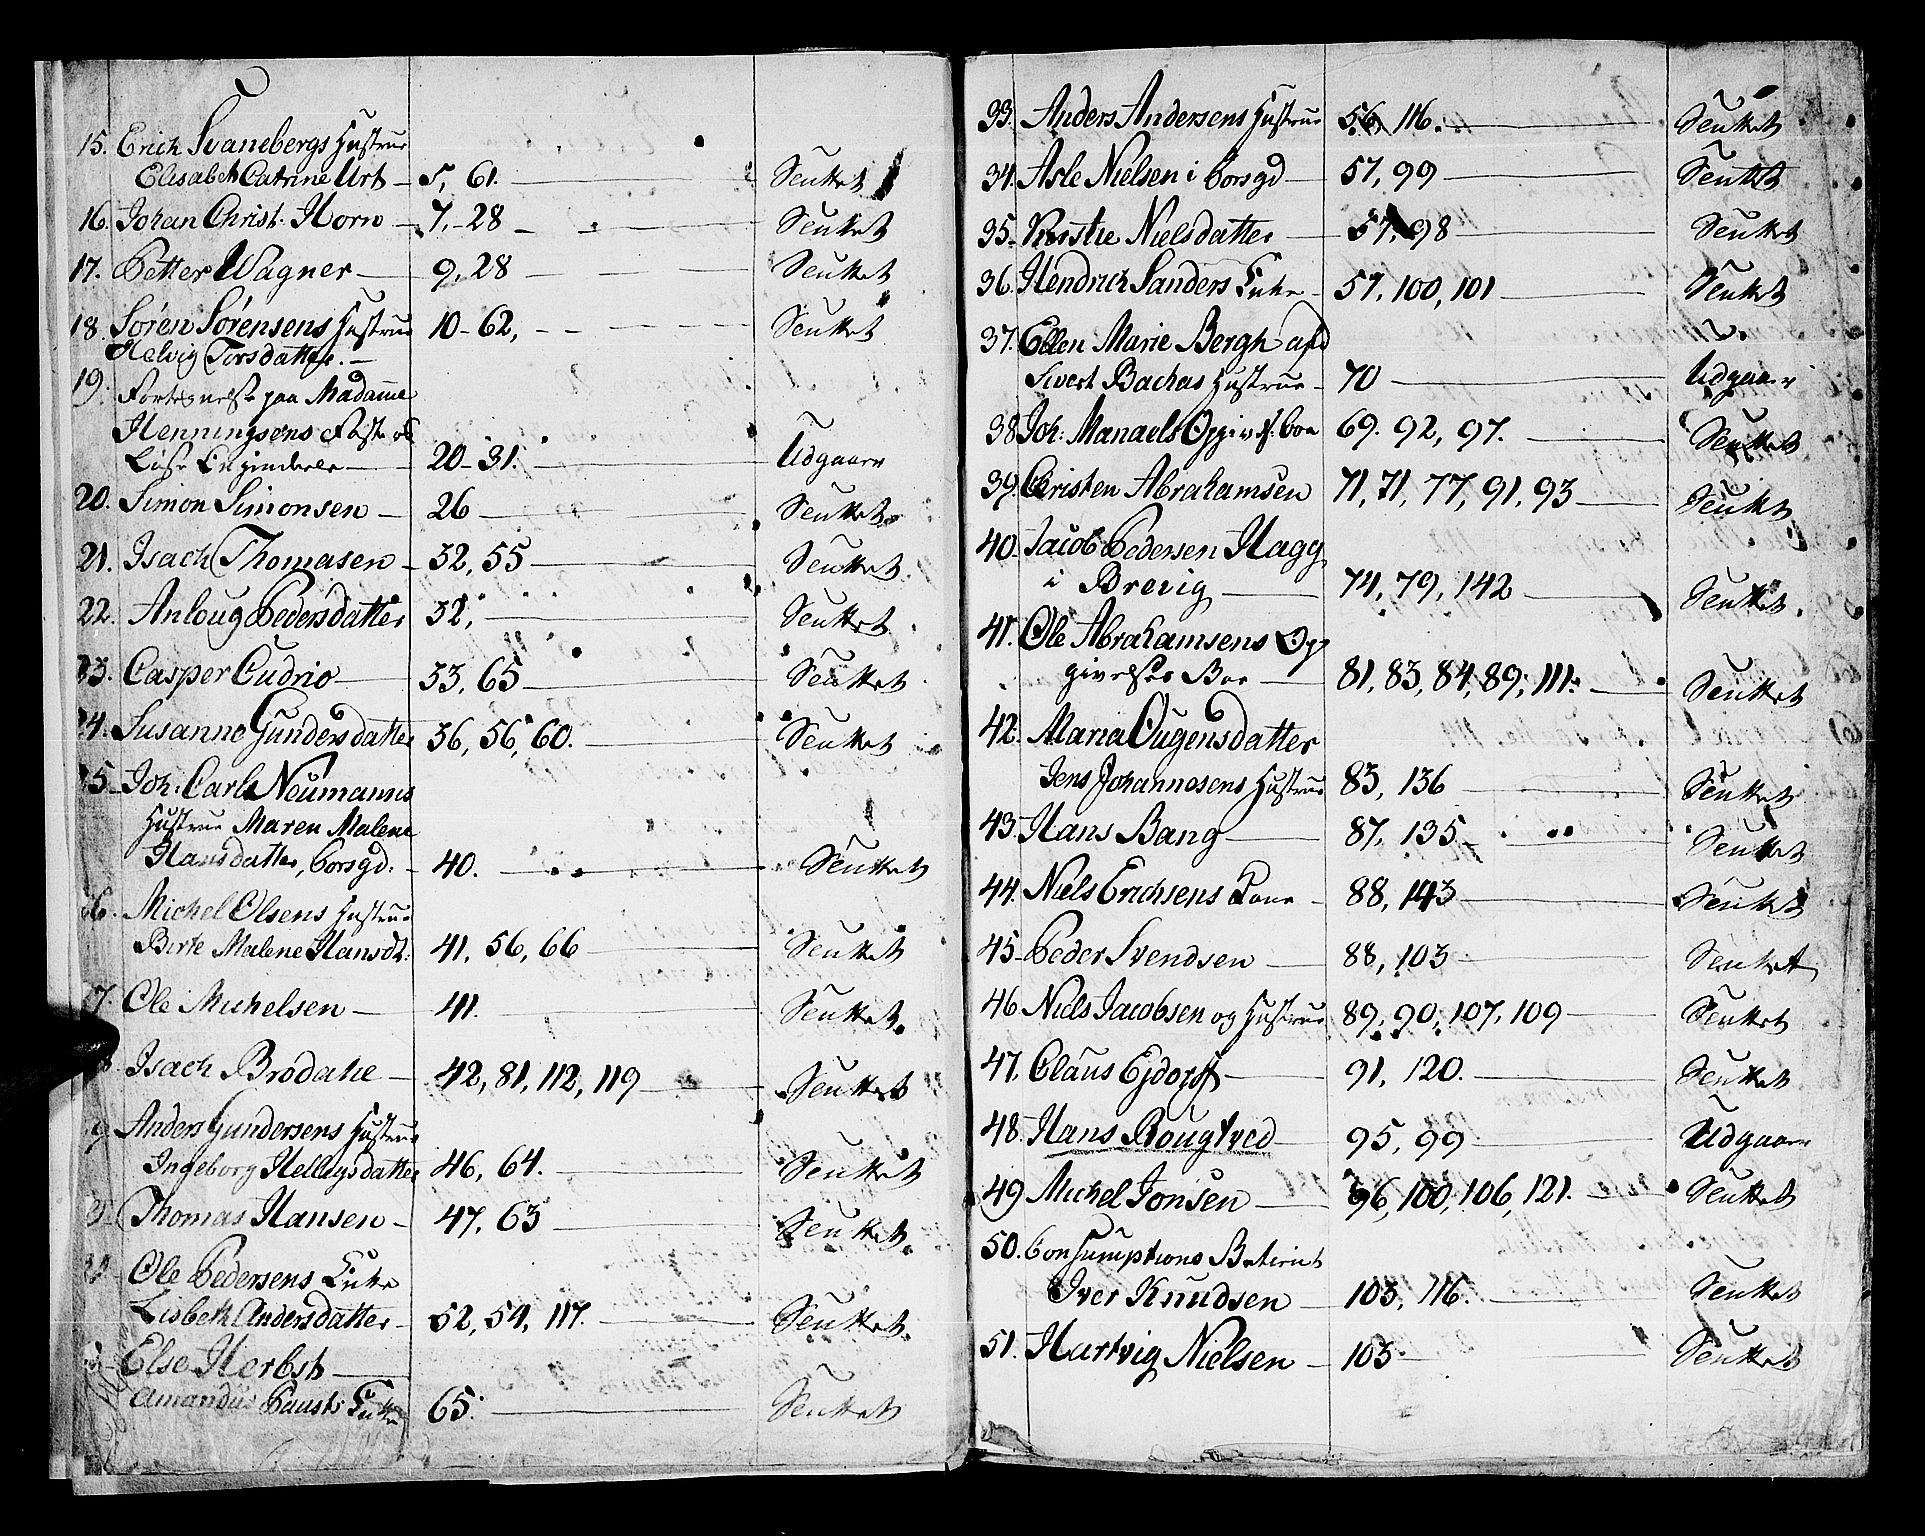 15. Erich Svanebergs Hustrue
Elisabeth Catrine Urt — 5, 61. — Sluttet
16. Johan Christ. Horn — 7, 28 — Sluttet
17. Petter Wagner — 9, 28 — Sluttet
18. Søren Sørensens Hustrue 10 - 62, — Sluttet
Helvig Torsdatter. —
19. Fortegnelse paa Madame
Henningsens Faste og
Løse Eiendeler — 20 - 31. — Udgaaer
20. Simon Simonsen — 26 — Sluttet
21. Isach Thomasen — 32, 55 — Sluttet
22. Anloug Pedersdatter 32, — Sluttet
23. Casper Cudrio — 33, 65 — Sluttet
24. Susanne Gundersdatter 36, 56, 60. — Sluttet
25. Joh: Carl Neumanns
Hustrue Maren Malene
Hansdatter, Porsgd. — 40. — Sluttet
26. Michel Olsens Hustrue
Birte Malene Hansdt: 41, 56, 66 — Sluttet
27 Ole Michelsen — 41. — Sluttet
28. Isach Brodahe — 42, 81, 112, 119 — Sluttet
29 Anders Gundersens Hustrue
Ingeborg Hellegsdatter 46, 64. — Sluttet
30 Thomas Hansen — 47, 63 — Sluttet
31 Ole Pedersens Enke
Lisbeth Andersdatter — 52, 54, 117. — Sluttet
32 Else Herbst —
Amandus Pausts Enke 65. — Sluttet
33. Anders Andersens Hustrue 56, 116. — Sluttet
34. Asle Nielsen i Porsgd — 57, 99 — Sluttet
35. Kirstie Nielsdatter — 57, 98 — Sluttet
36. Hendrich Sanders Enke — 57, 100, 101 — Sluttet
37. Ellen Marie Bergh
Sivert Bachas Hustrue — 70 — Udgaaer
38 Joh: Manaels Opgivels: Boe 69. 92, 97. — Sluttet
39. Christen Abrahamsen 71, 71, 77, 91, 93 — Sluttet
40. Jacob Pedersen Hagg
i Brevig — 74, 79, 142 — Sluttet
41. Ole Abrahamsens Op
givelses Boe — 81, 83, 84, 89, 111. — Sluttet
42. Maria Ougensdatter
Jens Johannesens Hustrue 83, 136 — Sluttet
43. Hans Bang — 87, 135 — Sluttet
44. Niels Erichsens Kone — 88, 143 — Sluttet
45. Peder Svendsen — 88, 103 — Sluttet
46 Niels Jacobsen og Hustrue 89, 90, 107, 109 — Sluttet
47. Claus Ejdorff — 91, 120. — Sluttet
48. Hans Rougtved — 95, 99 — Udgaaer
49 Michel Jonsen — 96, 100, 106, 121. — Sluttet
50. Consumptions Betient
Iver Knudsen — 103, 116. — Sluttet
51. Hartvig Nielsen — 103 — Sluttet